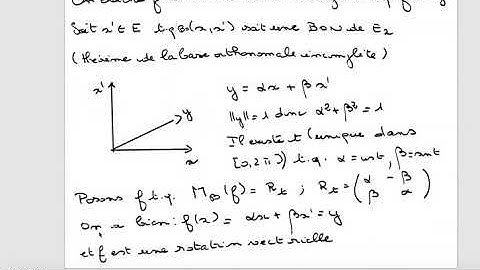 Soit x' ∈ E t.q. B(x, x') soit une BON de E₂
(théorème de la base orthonormale incomplète)
x'
y
x
y = αx + βx'
||y|| = 1 donc α² + β² = 1
Il existe t (unique dans
[0, 2π[) t.q. α = cos t, β = sin t
Posons f t.q. M_B(f) = R_t ; R_t = (α -β
β α)
On a bien : f(x) = αx + βx' = y
et f est une rotation vectorielle